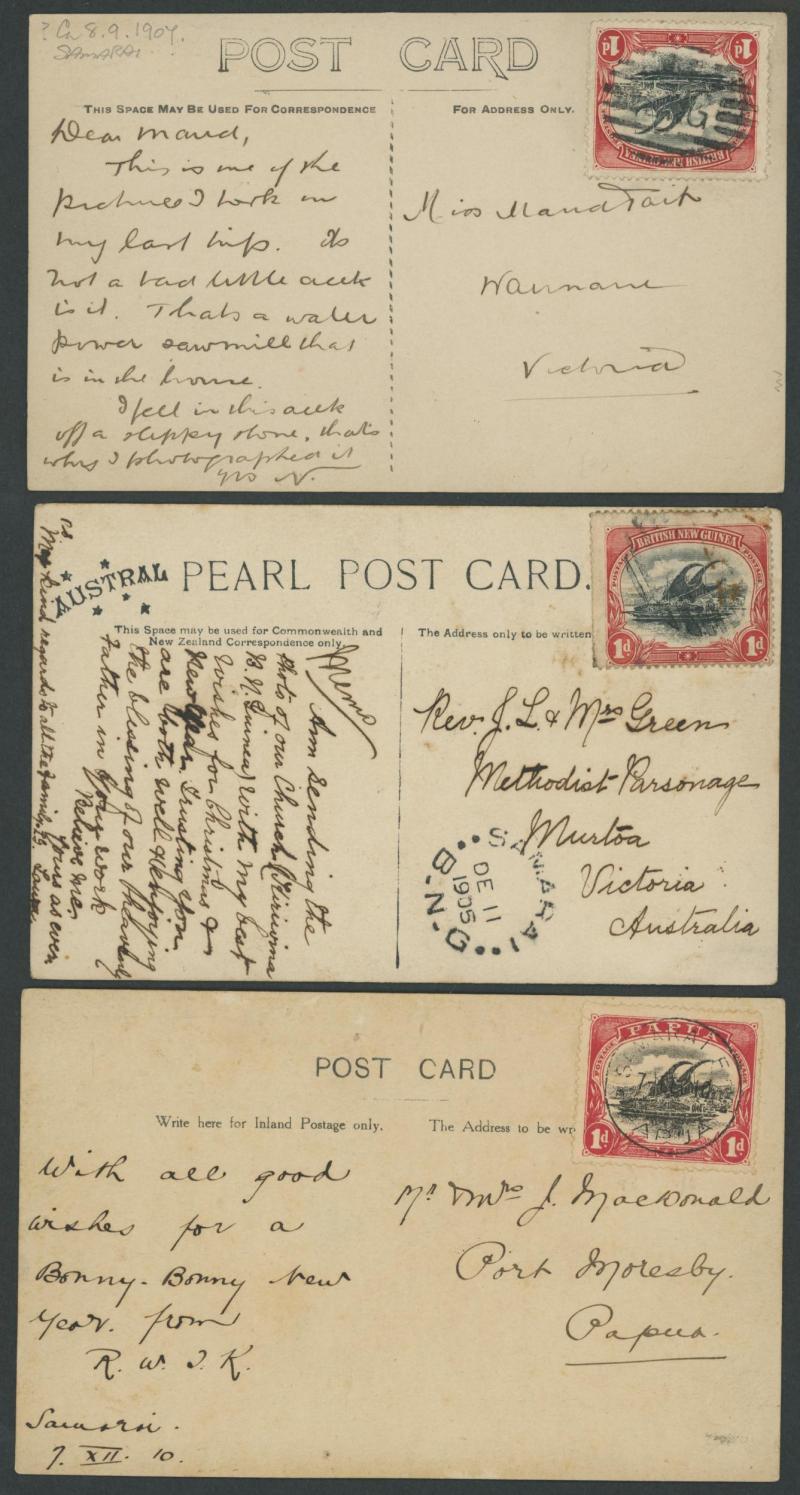 ? Ca 8.9.1907.
SAMARAI ?
POST CARD
THIS SPACE MAY BE USED FOR CORRESPONDENCE
FOR ADDRESS ONLY.
BRITISH NEW GUINEA
1d 1d
BNG
Dear Maud,
This is one of the
pictures I took on
my last trip. Its
not a bad little creek
is it. Thats a water
power sawmill that
is in the house.
I fell in this creek
off a slippy stone, that's
why I photographed it
yrs N.
Miss Maud Tait
Victoria
AUSTRAL PEARL POST CARD.
This Space may be used for Commonwealth and
New Zealand Correspondence only.
The Address only to be written
BRITISH NEW GUINEA
POSTAGE POSTAGE
1d 1d
Am sending the
photo of our Church (Kiriwina
B. N. Guinea) with my best
wishes for Christmas &
New Year. Trusting you
are both well & enjoying
the blessing of our Heavenly
Father in your work
Believe me,
Yours as ever
PS
My kind regards to all the family
Rev. J. L. & Mrs Green
Methodist Parsonage
Murtoa
Victoria
Australia
SAMARAI
DE 11
1905
B·N·G
POST CARD
Write here for Inland Postage only.
The Address to be wr
PAPUA
POSTAGE POSTAGE
1d 1d
SAMARAI
PAPUA
With all good
wishes for a
Bonny-Bonny New
Year. from
R. W. J. K.
Samarai.
7. XII. 10.
Mr & Mrs J. MacDonald
Port Moresby.
Papua.